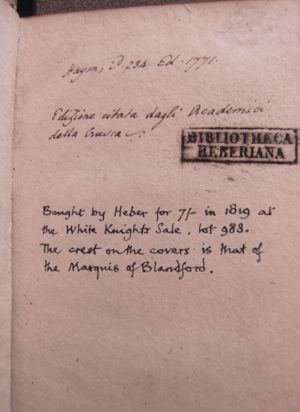 Haym, P. 234. Ed. 1771.
Edizione citata dagli Academici
della Crusca
BIBLIOTHECA
HEBERIANA
Bought by Heber for 7/- in 1819 at
the White Knights Sale, lot 988.
The crest on the covers is that of
the Marquis of Blandford.